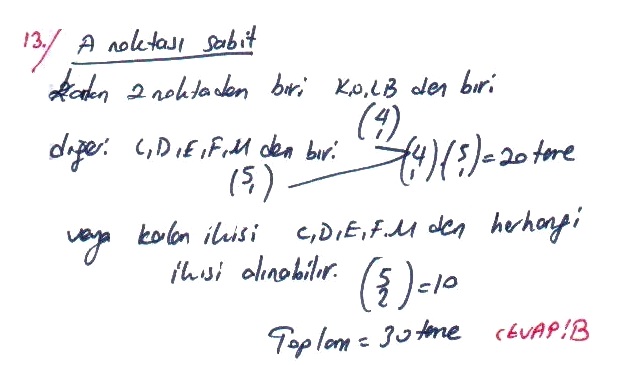 13./ A noktası sabit
Kalan 2 noktadan biri K,O,L,B den biri
(4 1)
diğeri C,D,E,F,M den biri. (4 1)(5 1)=20 tane
(5 1)
veya kalan ikisi C,D,E,F.M den herhangi
ikisi alınabilir. (5 2)=10
Toplam = 30 tane CEVAP:B